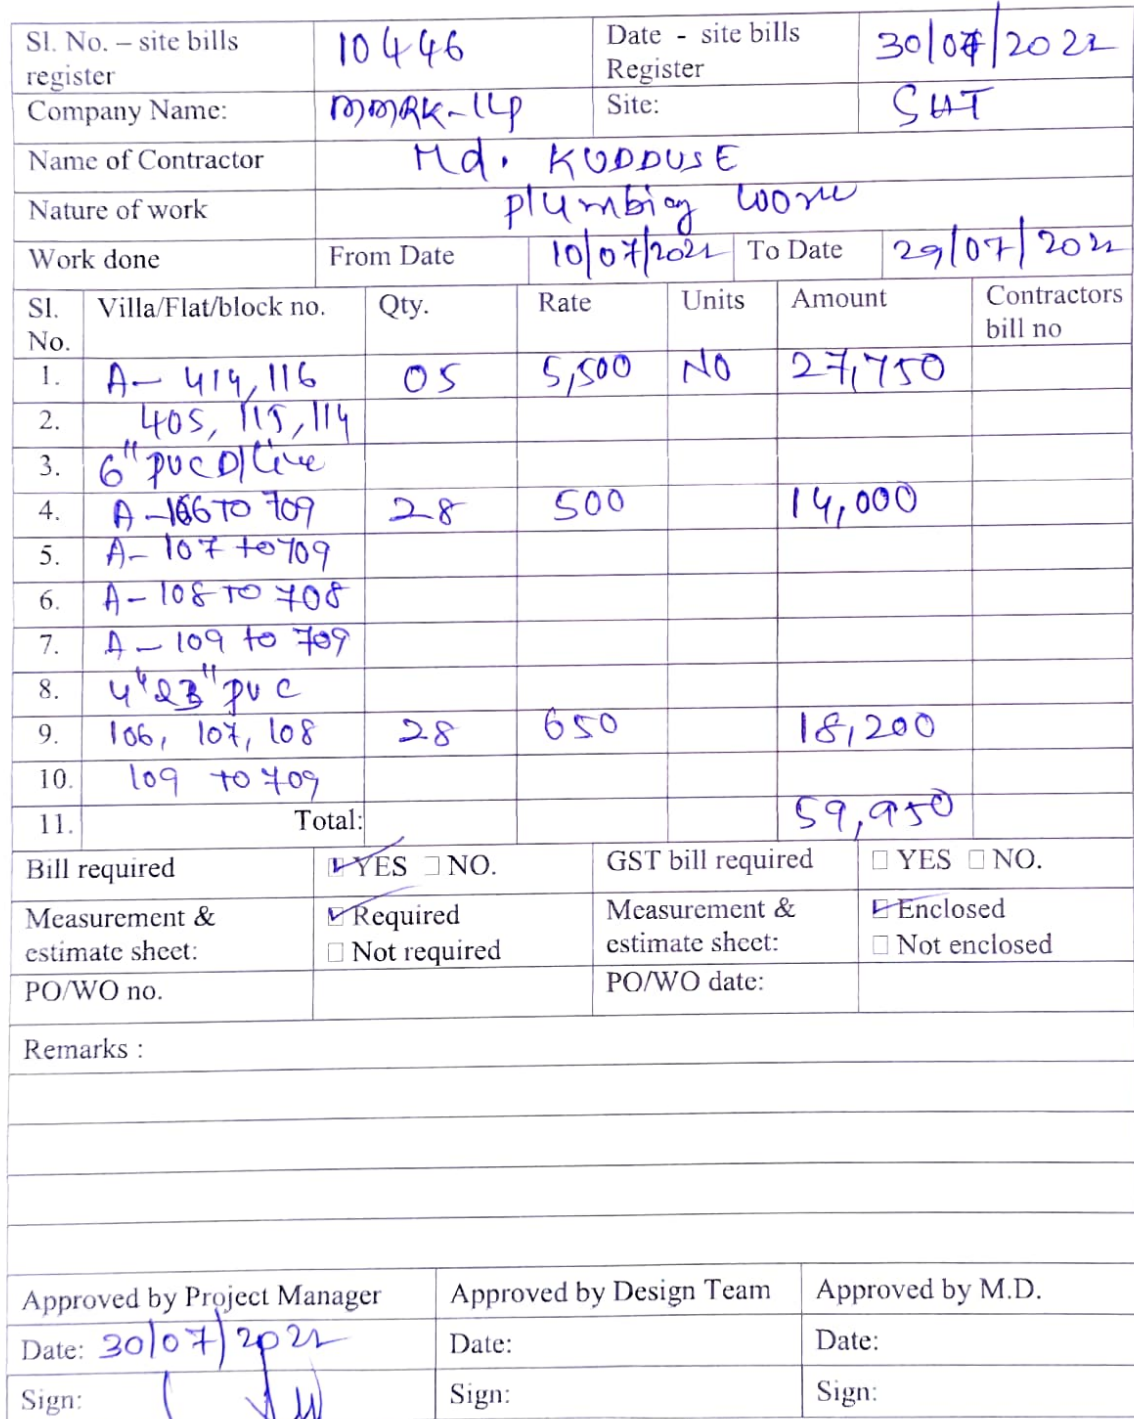 Sl. No. – site bills register 10446 Date - site bills Register 30/07/2022
Company Name: MMRK-LLP Site: SHT
Name of Contractor Md. KUDDUSE
Nature of work Plumbing work
Work done From Date 10/07/2022 To Date 29/07/2022
Sl. No. Villa/Flat/block no. Qty. Rate Units Amount Contractors bill no
1. A- 414, 116 05 5,500 NO 27,750
2. 405, 115, 114
3. 6" PVC D/Line
4. A-106 TO 709 28 500 14,000
5. A- 107 to 709
6. A- 108 TO 708
7. A - 109 to 709
8. 4" & 3" PVC
9. 106, 107, 108 28 650 18,200
10. 109 to 709
11. Total: 59,950
Bill required YES NO. GST bill required YES NO.
Measurement & estimate sheet: Required Not required Measurement & estimate sheet: Enclosed Not enclosed
PO/WO no. PO/WO date:
Remarks :
Approved by Project Manager Approved by Design Team Approved by M.D.
Date: 30/07/2022 Date: Date:
Sign: Sign: Sign: